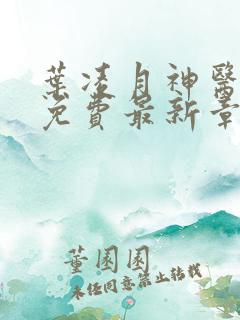 葉凌月神醫
免費最新章
董園園
未经同意禁止转载